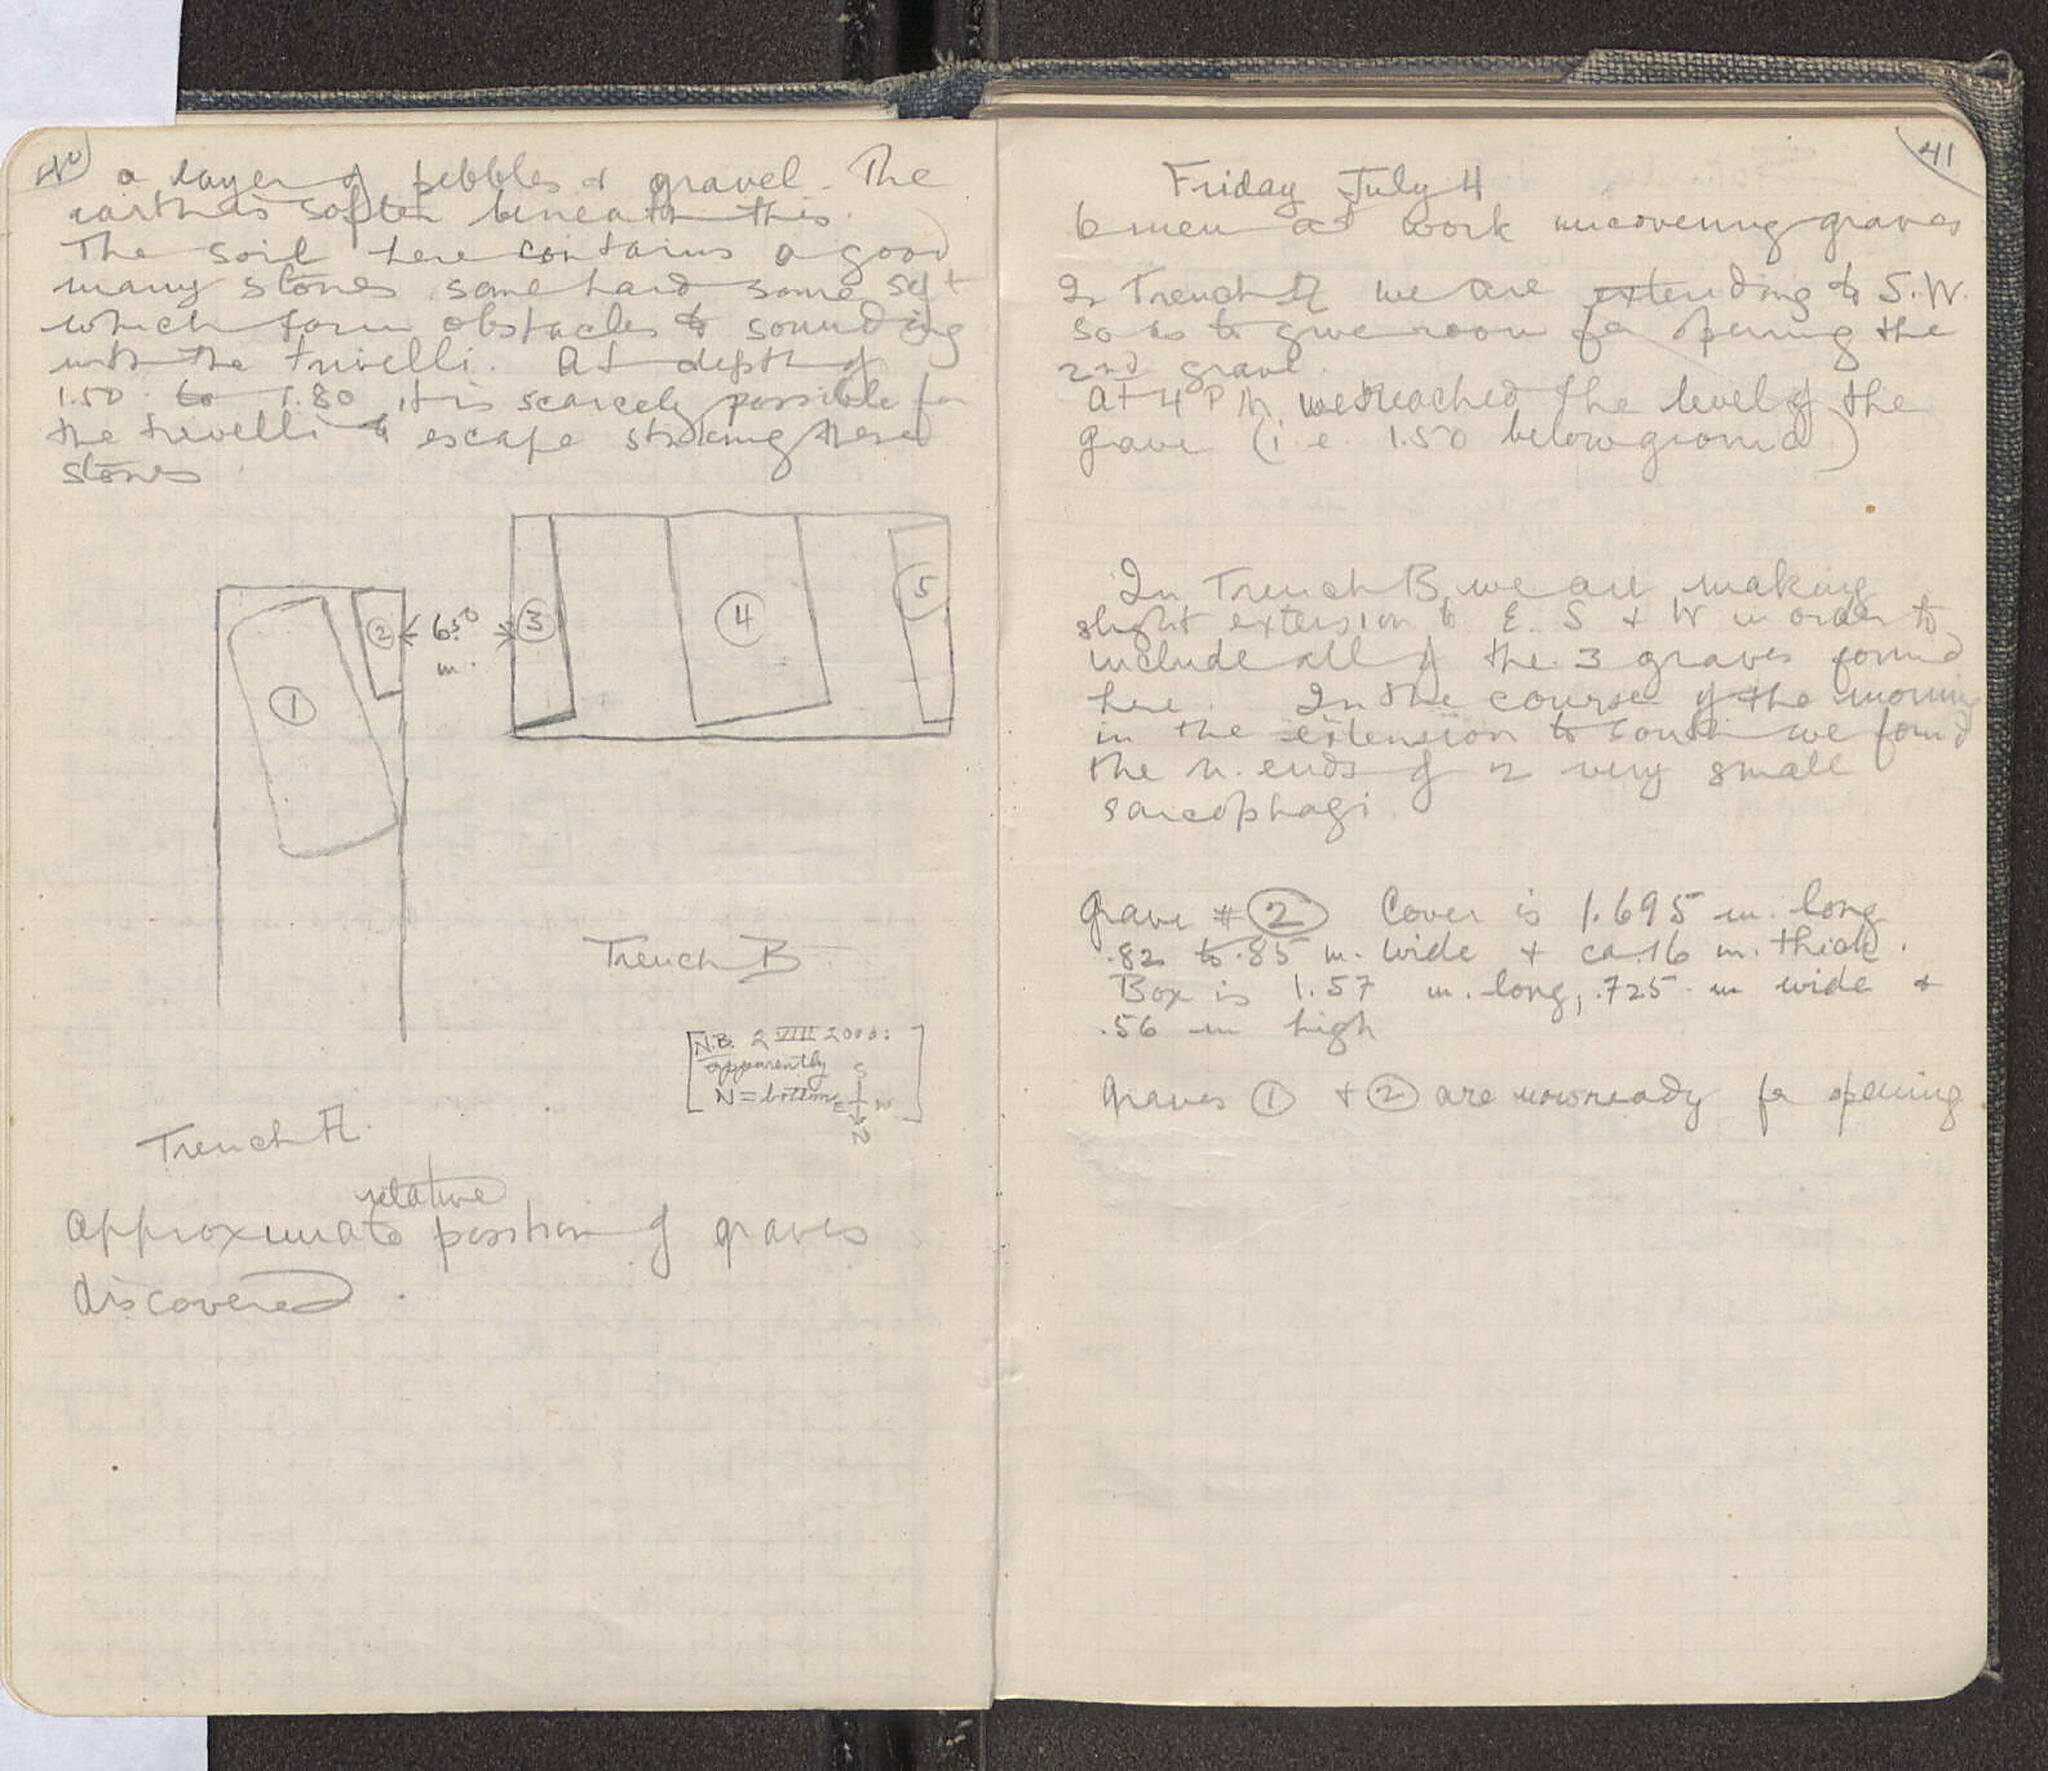 40
a layer of pebbles & gravel. The
earth is softer beneath this.
The soil here contains a good
many stones some hard some soft
which form obstacles to sounding
with the trivelli. At depth of
1.50 to 1.80 it is scarcely possible for
the trevelli to escape striking these
stones
1
2
6.50
m.
3
4
5
Trench B
[N.B. 2 VIII 2000:
apparently
N = bottom]
S
E W
N
Trench A
relative
Approximate position of graves
discovered.
41
Friday July 4
6 men at work uncovering graves
In Trench A we are extending to S.W.
so as to give room for opening the
2nd grave.
At 4 PM we reached the level of the
grave (i.e. 1.50 below ground)
In Trench B we are making
slight extension to E. S & W in order to
include all of the 3 graves found
here. In the course of the morning
in the extension to south we found
the n. ends of 2 very small
sarcophagi.
Grave # 2 Cover is 1.695 m. long
.82 to .85 m. wide & ca .16 m. thick.
Box is 1.57 m. long, .725 m wide &
.56 m high
Graves 1 & 2 are now ready for opening